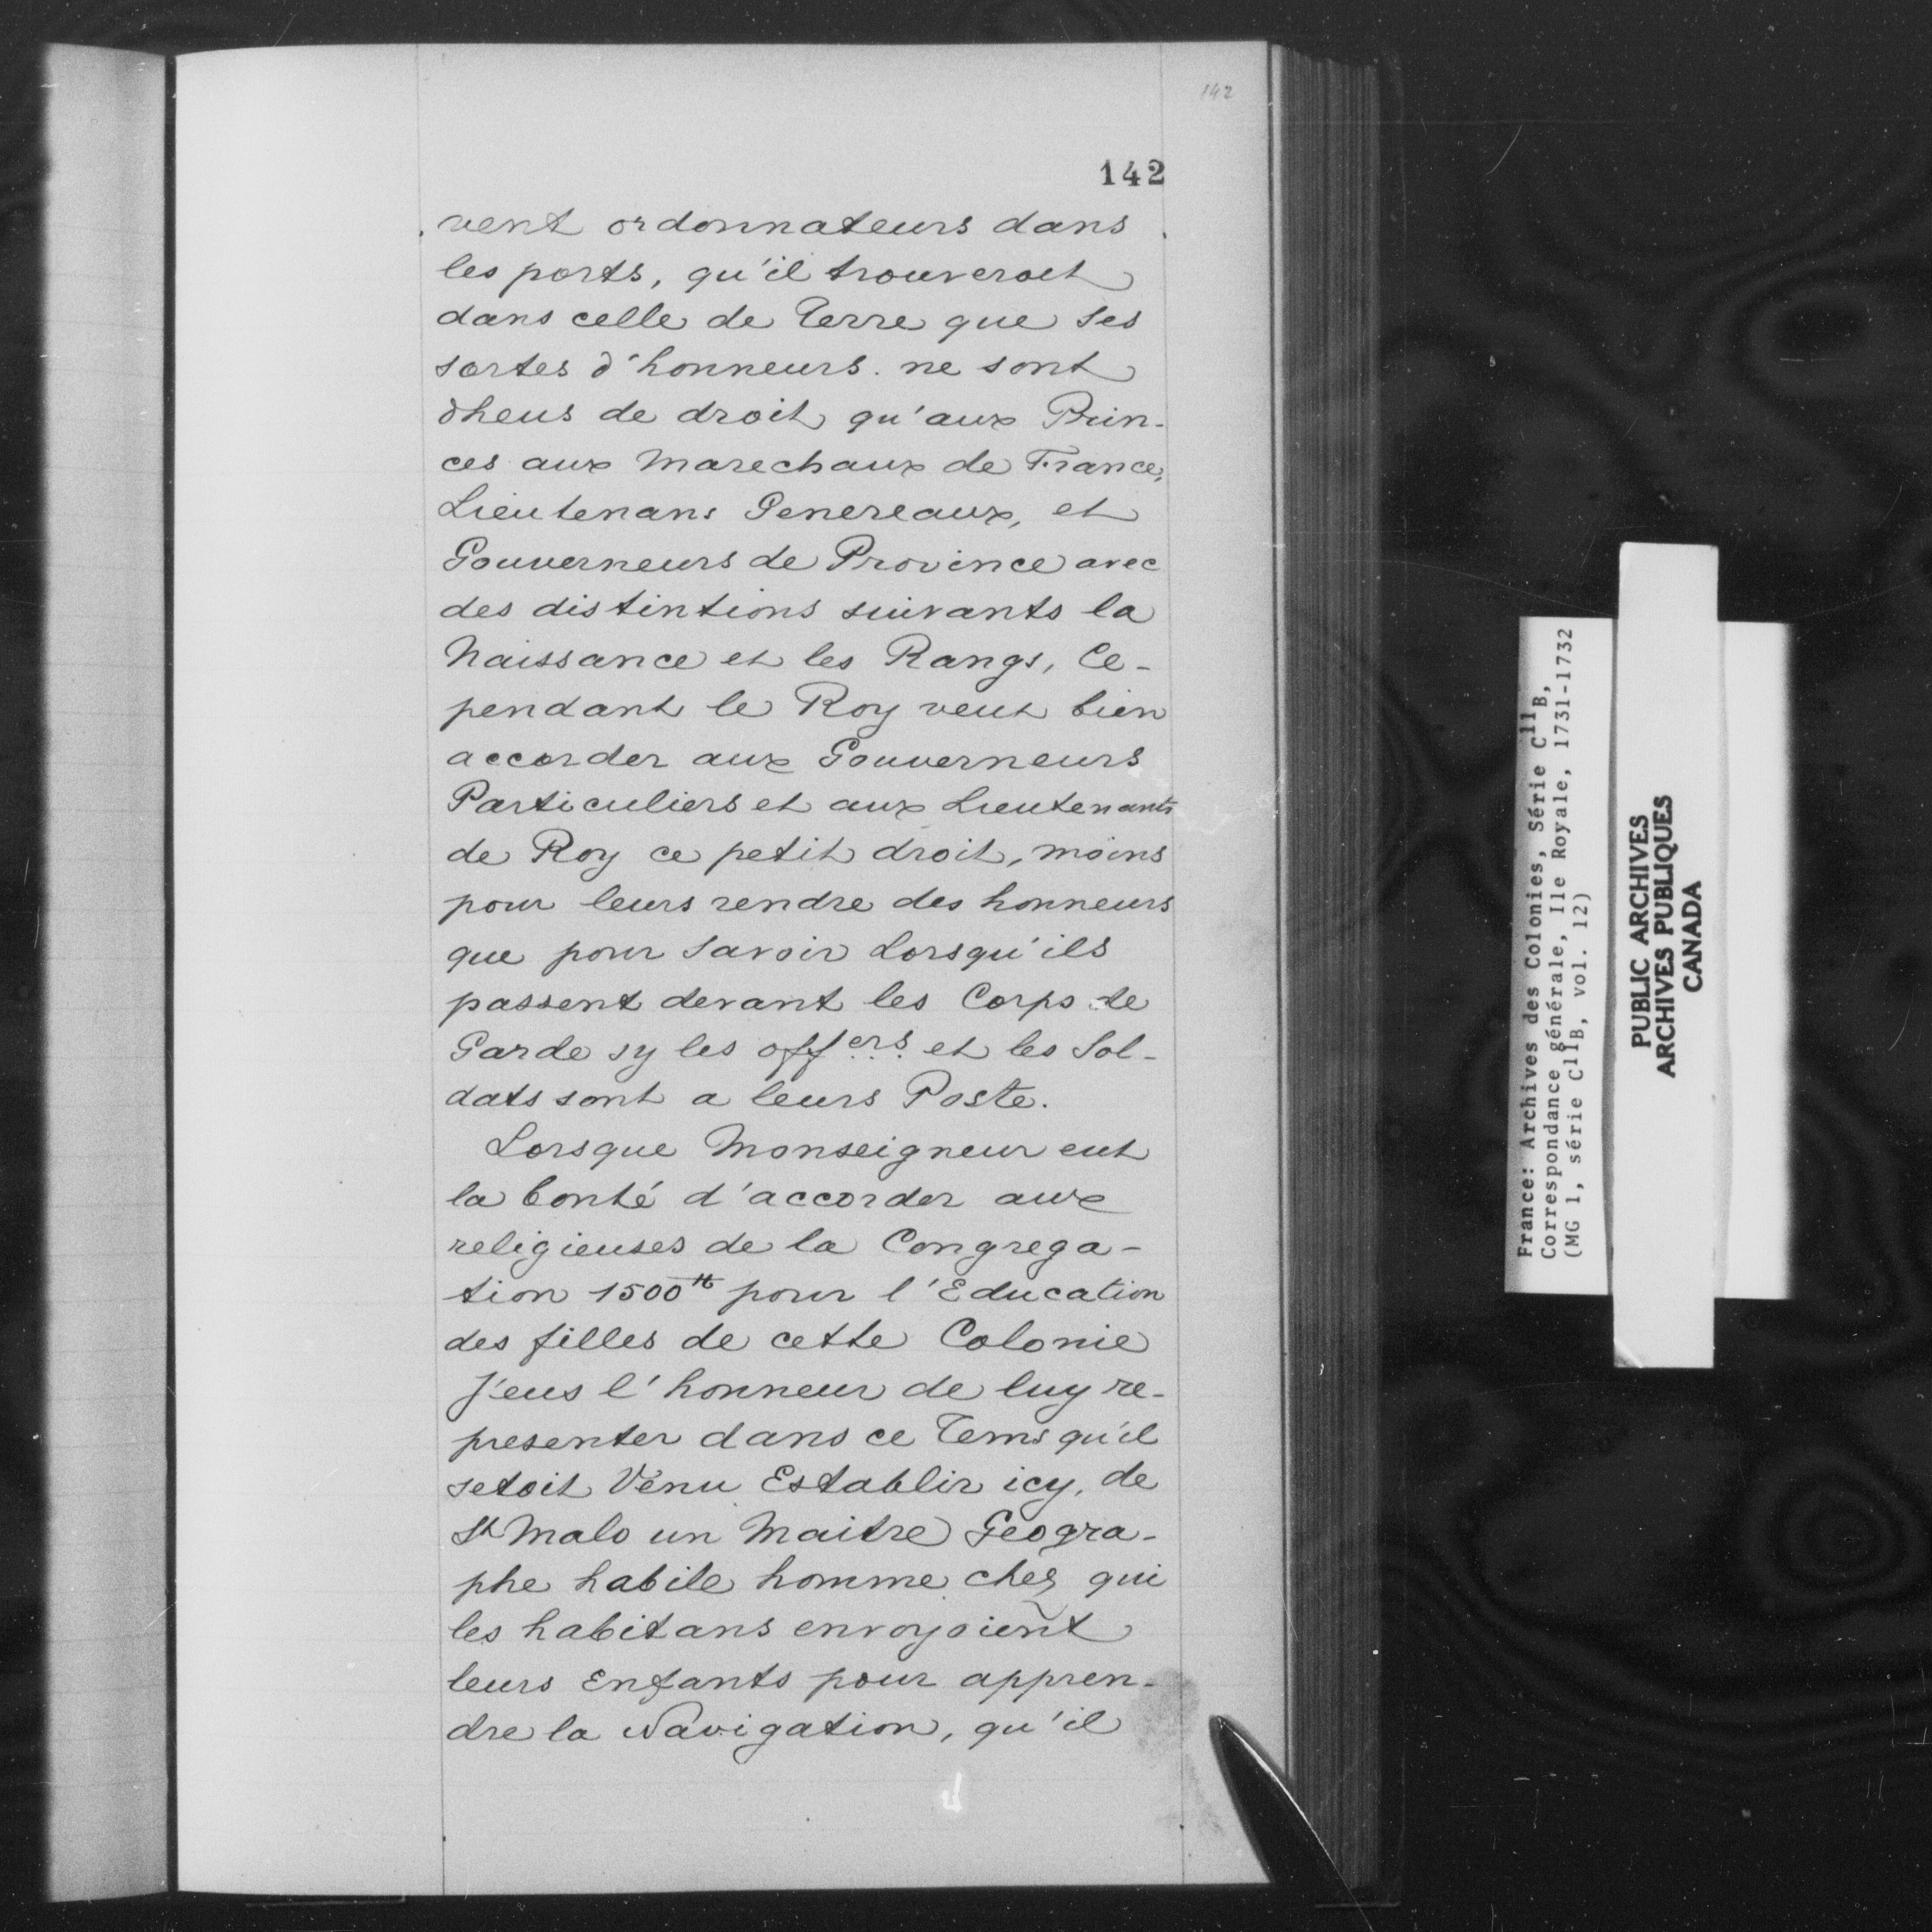 142
142
vent ordonnateurs dans
les ports, qu'il trouveroit
dans celle de Terre que ses
sortes d'honneurs. ne sont
dheus de droit qu'aux Prin-
ces aux Marechaux de France,
Lieutenans Genereaux, et
Gouverneurs de Province avec
des distintions suivants la
Naissance et les Rangs, Ce-
pendant le Roy veut bien
accorder aux Gouverneurs
Particuliers et aux Lieutenants
de Roy ce petit droit, moins
pour leurs rendre des honneurs
que pour savoir Lorsqu'ils
passent devant les Corps de
Garde sy les offers et les Sol-
dats sont a leurs Poste.
Lorsque Monseigneur eut
la bonté d'accorder aux
religieuses de la Congrega-
tion 1500tt pour l'Education
des filles de cette Colonie
J'eus l'honneur de luy re-
presenter dans ce Tems qu'il
setoit Venu Establir icy, de
St Malo un Maitre Geogra-
phe habile homme chez qui
les habitans envoyoient
leurs Enfants pour appren-
dre la Navigation, qu'il
France: Archives des Colonies, Série C11B,
Correspondance générale, Ile Royale, 1731-1732
(MG 1, série C11B, vol. 12)
PUBLIC ARCHIVES
ARCHIVES PUBLIQUES
CANADA